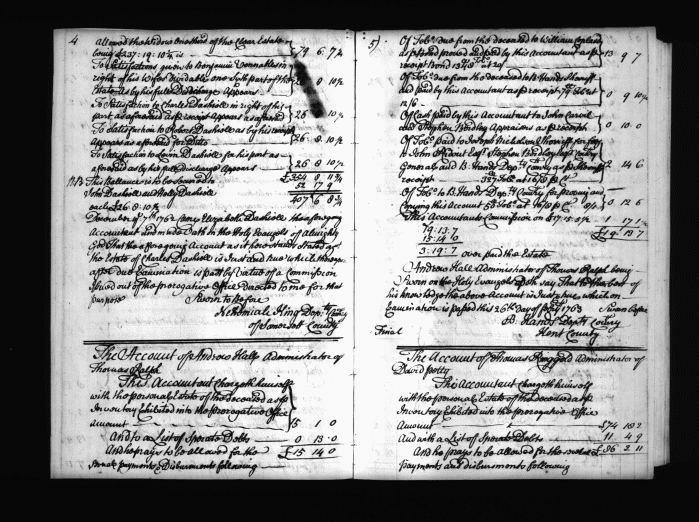 4
Allowed the Widow One third of the Clear Estate
being £237: 19: 10½ is 79 6 7½
To Satisfaction given to Benjamin
right of his Wife dividable one Sixth part of the
Estate As by his full Discharge Appears 0 10½
To Satisfaction to Charles Dashiele in right of his
part as aforesaid as p receipt Appears as aforesaid 26 10½
To Satisfaction to Robert Dashiele as by his receipt
Appears as aforesaid for ditto 26: 8 10½
To Satisfaction to Levin Dashiele for his part as
aforesaid as by his full Discharge Appears 26 8 10½
NB This Ballance is to be conveyed to £354 8 11¾
John Dashiele and Holly Dashiele 52 17 9
each £26: 8: 10½ 407 6 8¾
December ye 7th 1762 Came Elizabeth Dashiele the foregoing
Accountant and made Oath on the Holy Evangels of Almighty
God That the aforegoing Account as it now Stands Stated of
the Estate of Charles Dashiele is Just and true which thereupon
after due Examination is past by Virtue of a Commission
Issued out of the prerogative Office Directed to me for that
purpose Sworn to Before
Nehemiah King Depty Comry
of Somerset County
The Account of Andrew Hall Administrator of
Thomas Ralph
This Accountant Chargeth himself
with the personal Estate of the deceased as p
Inventory Exhibited into the prerogative Office
amount 15 1 0
And to a List of Sperate Debts 0 13 0
And he prays to be allowed for the £15 14 0
Several payments & Disbursments following
5
Of Tobo due from the deceased to William Copeland
as p Bond proved and paid by this Accountant as p
receipt 13 9 7
Of Tobo due from the deceased to the Hands Sheriff
and paid by this Accountant as p receipt Tobo at
12/6 0 9 10½
Of Cash paid by this Accountant to John Carvil
and Stephen Bordley Appraisers as p receipt 0 10 0
Of Tobo paid to Joseph Nicholson Sheriff for pay
to John Offield Esqr Stephen Bordley Esqr Attry
General and B. Hands Depty Comry as p Sheriffs
receipt 2 14 6
Of Tobo to B. Hands Depty Comry for passing and
Copying this Account 0 12 6
This Accountants Commission on £17. 15. 0 1 17 1½
19: 13: 7 £19 13 7
15: 14 0
3: 19: 7 over paid the Estate
Andrew Hall Administrator of Thomas Ralph being
Sworn on the Holy Evangels doth say That to the best of
his knowledge the above Account is Just & true which on
Examination is passed this 26th Day of 1763 Sworn before
B. Hands Depty Comry
Final Kent County
The Account of Thomas Ringgold Administrator of
David Jolly
This Accountant Chargeth himself
with the personal Estate of the deceased as p
Inventory Exhibited into the prerogative Office
Amount
And with a List of Sperate Debts 11 4 9
And he prays to be allowed for the several £86 2 11
payments and disbursments following